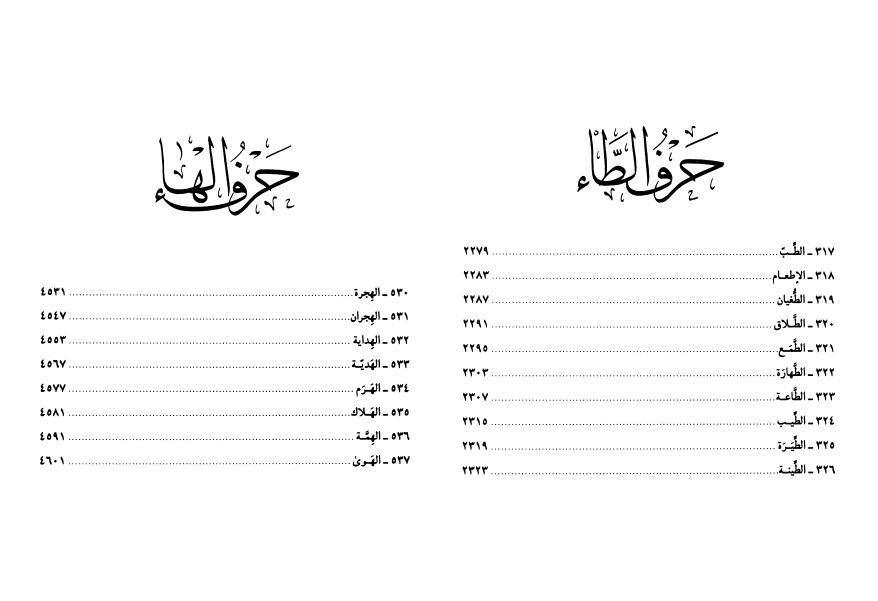 حَرْفُ الطَّاء
٣١٧ ـ الطِّبّ ........ ٢٢٧٩
٣١٨ ـ الإطعـام ........ ٢٢٨٣
٣١٩ ـ الطُّغيان ........ ٢٢٨٧
٣٢٠ ـ الطَّـلاق ........ ٢٢٩١
٣٢١ ـ الطَّمَـع ........ ٢٢٩٥
٣٢٢ ـ الطَّهارَة ........ ٢٣٠٣
٣٢٣ ـ الطَّاعـة ........ ٢٣٠٧
٣٢٤ ـ الطِّيـب ........ ٢٣١٥
٣٢٥ ـ الطِّيَـرَة ........ ٢٣١٩
٣٢٦ ـ الطِّينـة ........ ٢٣٢٣
حَرْفُ الهَاء
٥٣٠ ـ الهِجرة ........ ٤٥٣١
٥٣١ ـ الهِجران ........ ٤٥٤٧
٥٣٢ ـ الهِداية ........ ٤٥٥٣
٥٣٣ ـ الهَديّـة ........ ٤٥٦٧
٥٣٤ ـ الهَـرَم ........ ٤٥٧٧
٥٣٥ ـ الهَـلاك ........ ٤٥٨١
٥٣٦ ـ الهِمَّـة ........ ٤٥٩١
٥٣٧ ـ الهَـوىٰ ........ ٤٦٠١